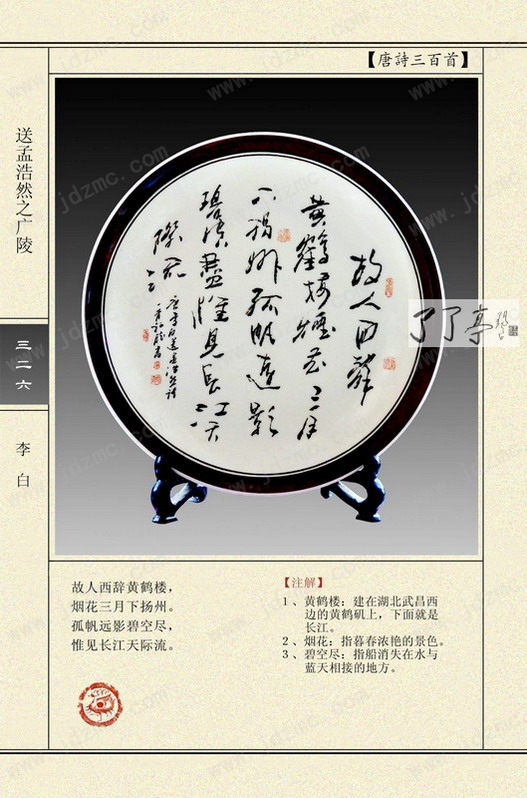 【唐詩三百首】
送孟浩然之广陵
三二六
李白
故人西辭
黄鶴樓煙花三月
下揚州孤帆遠影
碧空盡惟見長江天
際流
了了亭
故人西辞黄鹤楼，
烟花三月下扬州。
孤帆远影碧空尽，
惟见长江天际流。
【注解】
1、黄鹤楼：建在湖北武昌西
边的黄鹤矶上，下面就是
长江。
2、烟花：指暮春浓艳的景色。
3、碧空尽：指船消失在水与
蓝天相接的地方。
www.jdzmc.com